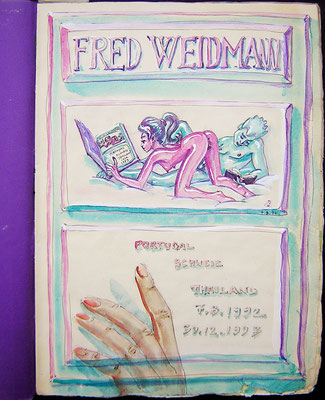 FRED WEIDMANN
PORTUGAL
SCHWEIZ
THAILAND
7.3.1992
30.12.1993